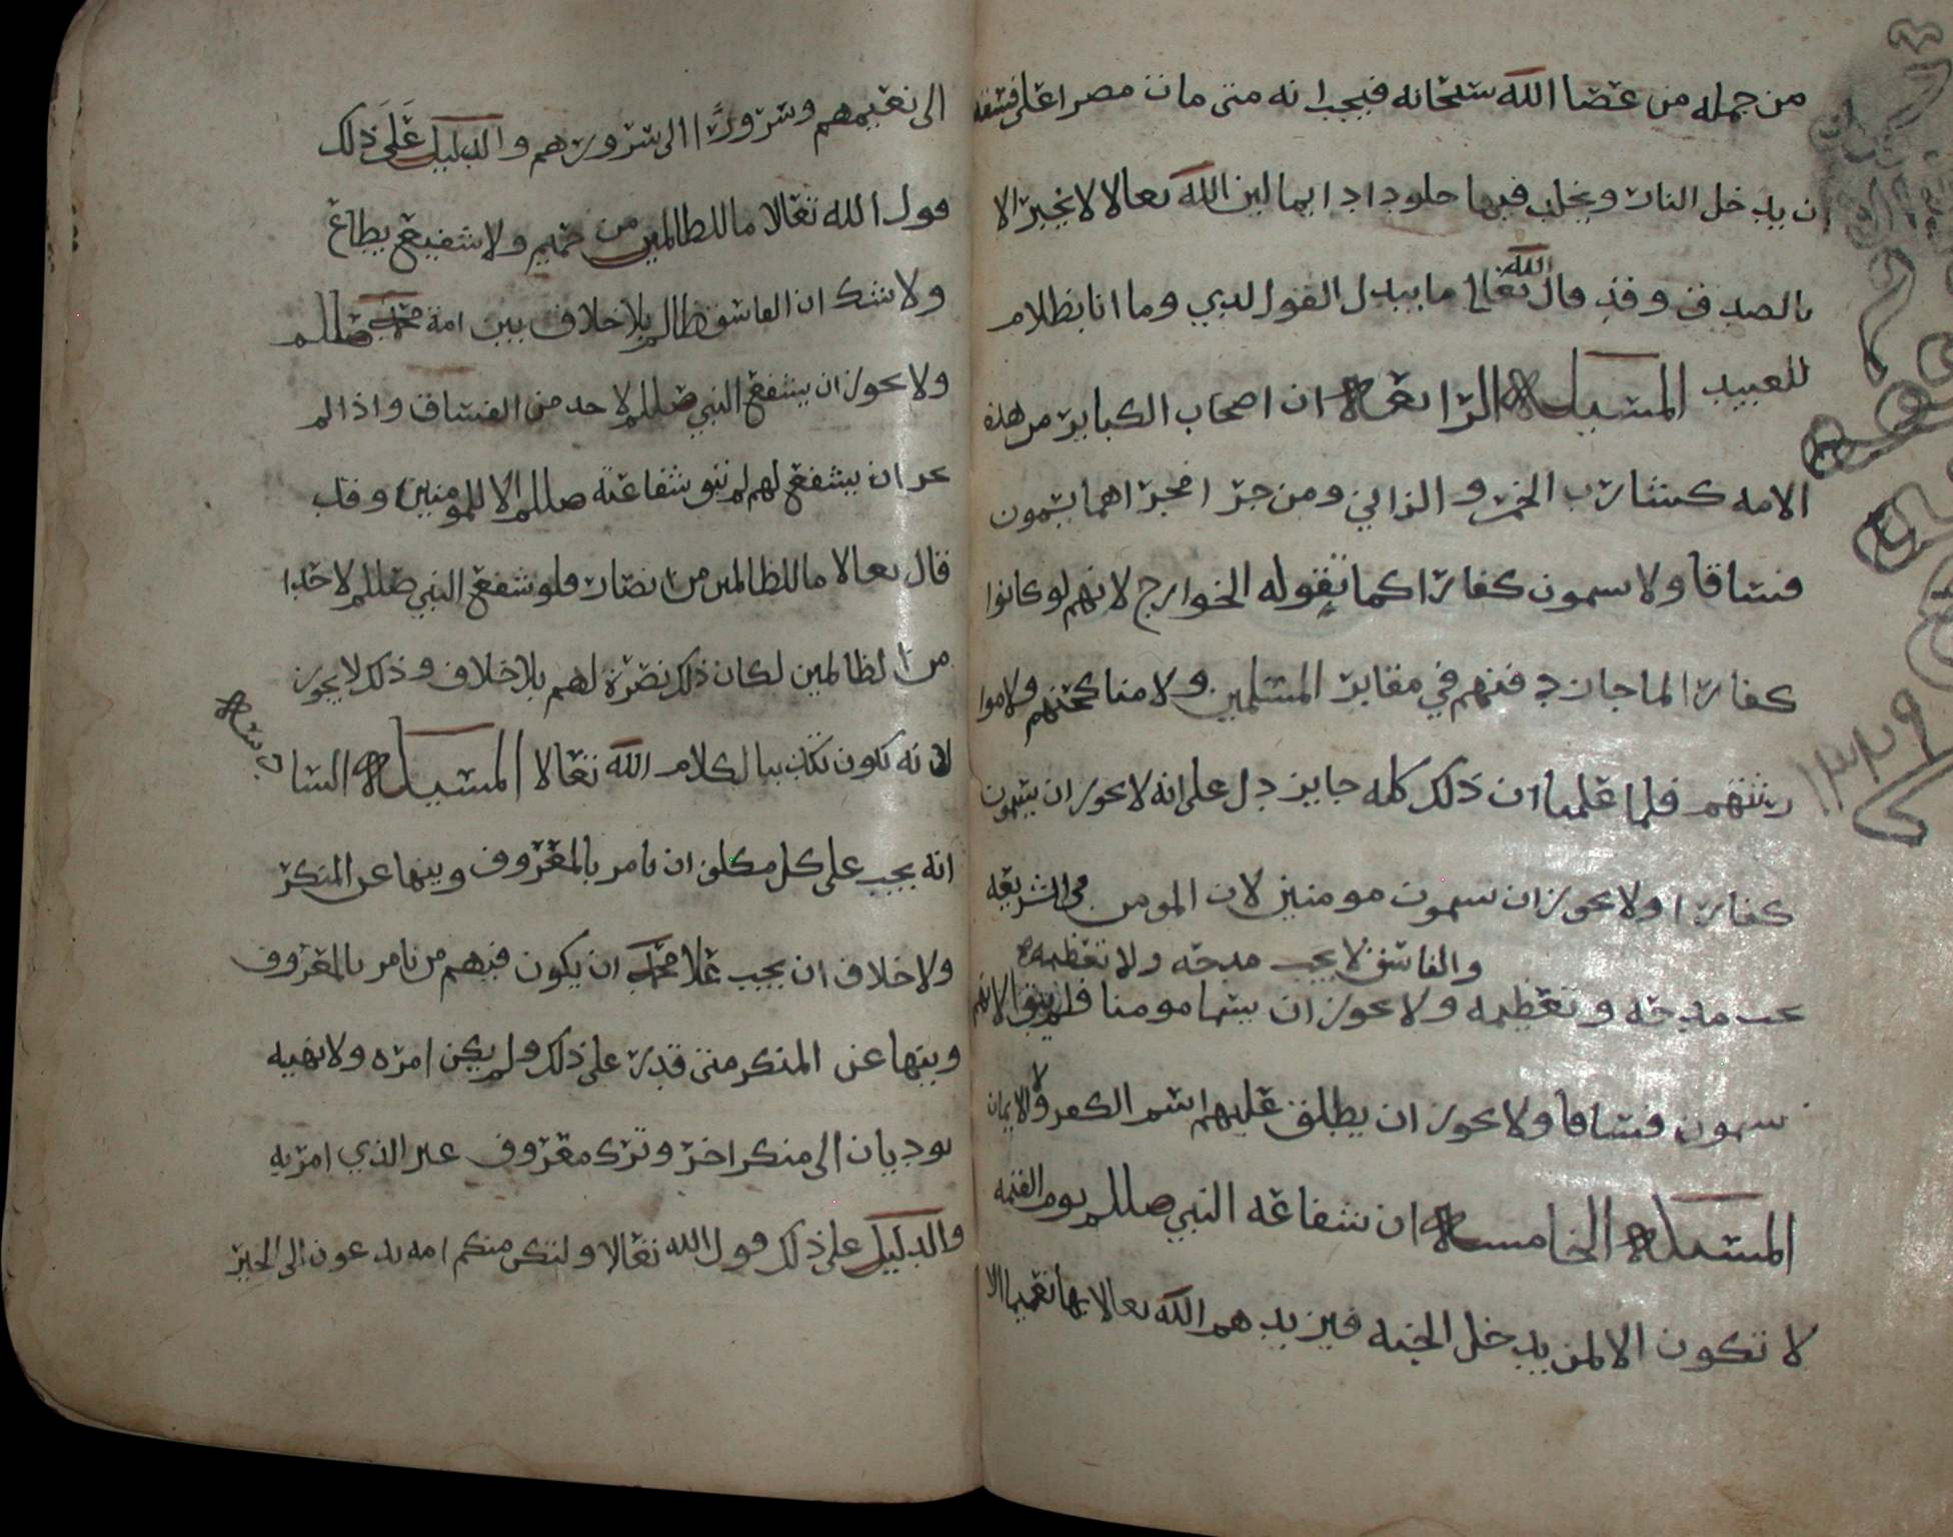 من جمله من عصا الله سبحانه فيجب انه متى مات مصرا على فسقه
ان يدخل النار ويخلد فيها خلودا دايما لان الله تعالا لا يخبر الا
بالصدق وقد قال الله تعالا ما يبدل القول لدي وما انا بظلام
للعبيد المسيله الرابعه ان اصحاب الكباير من هذه
الامه كشارب الخمر والزاني ومن جرا مجراهما يسمون
فساقا ولا يسمون كفارا كما تقوله الخوارج لانهم لو كانوا
كفارا لما جاز دفنهم في مقابر المسلمين ولا مناكحتهم ولا موا
رثتهم فلما علمنا ان ذلك كله جايز دل على انه لا يجوز ان يسمون
كفارا ولا يجوز ان يسمون مومنين لان المومن في الشريعه
والفاسق لا يجب مدحه ولا تعظيمه
يجب مدحه وتعظيمه ولا يجوز ان يسما مومنا فلم يبق الا انهم
يسمون فساقا ولا يجوز ان يطلق عليهم اسم الكفر ولا الايمان
المسيله الخامسه ان شفاعه النبي صللم يوم القيمه
لا تكون الا لمن يدخل الجنه فيزيدهم الله تعالا بها نعيما الا
١٣٣٩
الى نعيمهم وسرورا الى سرورهم والدليل على ذلك
قول الله تعالا ما للظالمين من حميم ولا شفيع يطاع
ولا شك ان الفاسق ظالم بلا خلاف بين امة محمد صللم
ولا يجوز ان يشفع النبي صللم لاحد من الفساق واذا لم
يجز ان يشفع لهم لم تبق شفاعته صللم الا للمومنين وقد
قال تعالا ما للظالمين من انصار فلو شفع النبي صللم لاحدا
من الظالمين لكان ذلك نصرة لهم بلا خلاف وذلك لا يجوز
لانه يكون تكذيبا لكلام الله تعالا المسيله السادسه
انه يجب على كل مكلف ان يامر بالمعروف وينها عن المنكر
ولا خلاف ان يجب علا محمد ان يكون فيهم من يامر بالمعروف
وينها عن المنكر متى قدر على ذلك ولم يكن امره ولا نهيه
يوديان الى منكر اخر وترك معروف غير الذي امر به
والدليل على ذلك قول الله تعالا ولتكن منكم امه يدعون الى الخير